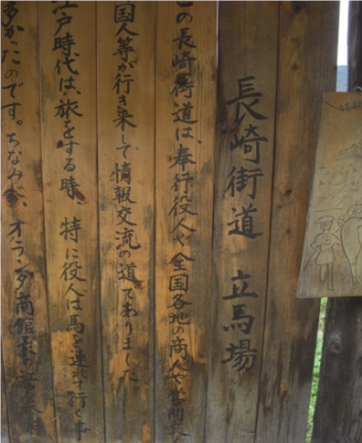 長崎街道 立馬場
この長崎街道は、奉行役人や全国各地の商人や
国人等が行き来して情報交流の道でありました
江戸時代は、旅をする時 特に役人は馬を連れて行く事
多かたのです。ちなみに、オランダ商館長の